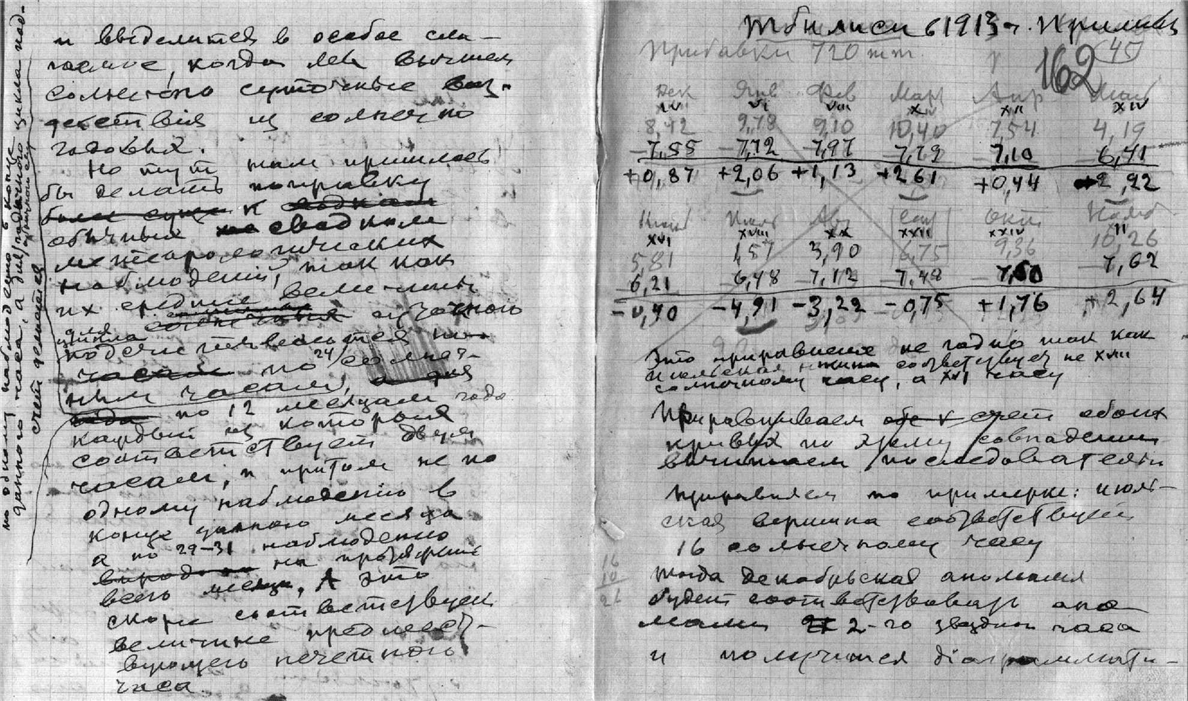 и выделится в особое сла-
гаемое, когда мы вычтем
солнечно суточные воз-
действия из солнечно
годовых.
Но тут нам пришлось
бы делать поправку
к
обычных сводкам
метеорологических
наблюдений, так как
их средние величины
для суточного
цикла
подсчитываются
по 24 солнеч-
ным часам, а для
года по 12 месяцам года
каждый из которых
соответствует двум
часам, и притом не по
одному наблюдению в
конце данного месяца
а по 29-31 наблюдению
на протяжении
всего месяца. А это
скорее соответствует
величине предшест-
вующего нечетного
часа.
по одному наблюдению в конце
данного часа, а для годичного цикла под-
счет делается
Тбилиси 1913 г. Приливы
162
45
Прибавки 720 mm
Дек Янв Фев Март Апр Май
IV VI VIII X XII XIV
8,42 9,78 9,10 10,40 7,54 4,19
-7,55 -7,72 -7,97 7,79 -7,10 -6,41
+0,87 +2,06 +1,13 +2,61 +0,44 2,92
Июнь Июль Авг Сен Окт Нояб
XVI XX XXII XXIV II
5,81 1,57 3,90 6,75 9,36 10,26
6,21 -6,48 -7,12 -7,48 7,62
-0,40 -4,91 -3,22 -0,75 +1,76 +2,64
Это приравнение не годно так как
июльская соответствует не XVIII
солнечному часу, а XVI часу
Приравниваем счет обоих
кривых по этому совпадению
вычитаем последователь
Приравняем по примерке: июль-
ская вершина соответствует
16 солнечному часу
тогда декабрьская аномалия
будет соответствовать ано
малии 2-го звездного часа
и получится діаграммати-
16
10
26